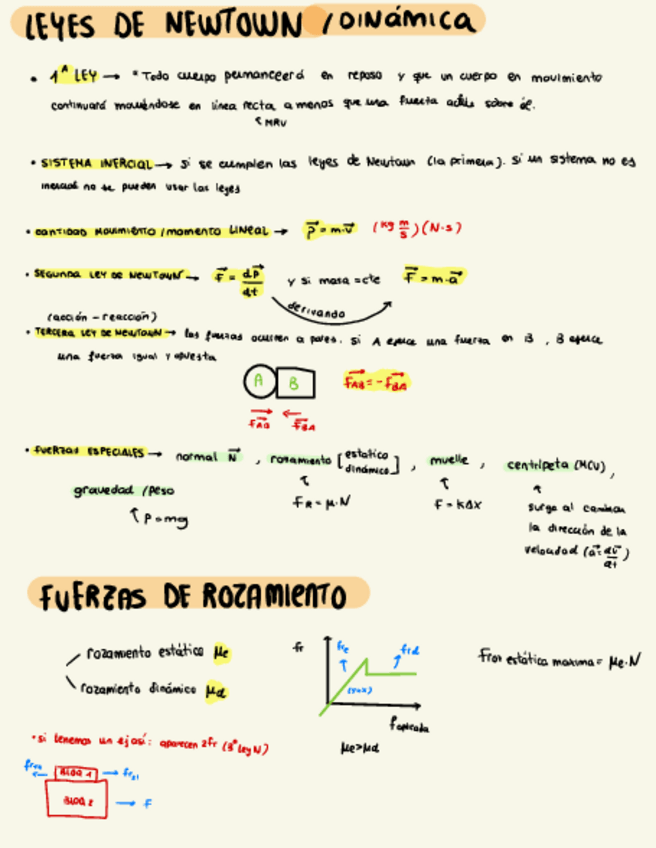 LEYES DE NEWTOWN / DINÁMICA
• 1ª LEY → "Todo cuerpo permanecerá en reposo y que un cuerpo en movimiento
continuará moviéndose en línea recta, a menos que una fuerza actúe sobre él.
MRU
• SISTEMA INERCIAL → si se cumplen las leyes de Newtown (la primera). Si un sistema no es
inercial no se pueden usar las leyes
• CANTIDAD MOVIMIENTO / MOMENTO LINEAL → p = m·v (kg m/s) (N·s)
• SEGUNDA LEY DE NEWTOWN → F = dp/dt y si masa = cte F = m·a
derivando
(acción - reacción)
• TERCERA LEY DE NEWTOWN → las fuerzas ocurren a pares. Si A ejerce una fuerza en B, B ejerce
una fuerza igual y opuesta
A B FAB = - FBA
FAB FBA
• FUERZAS ESPECIALES → normal N, rozamiento [estatico dinámico], muelle, centrípeta (MCU),
gravedad / peso
P = mg
FR = μ·N
F = KΔx
surge al cambiar
la dirección de la
velocidad (a = dv/dt)
FUERZAS DE ROZAMIENTO
rozamiento estático μe
rozamiento dinámico μd
fr
fre
frd
faplicada
μe>μd
Froz estática maxima = μe·N
• si tenemos un ej así: aparecen 2fr (3ª ley N)
BLOQ 1
BLOQ 2
F